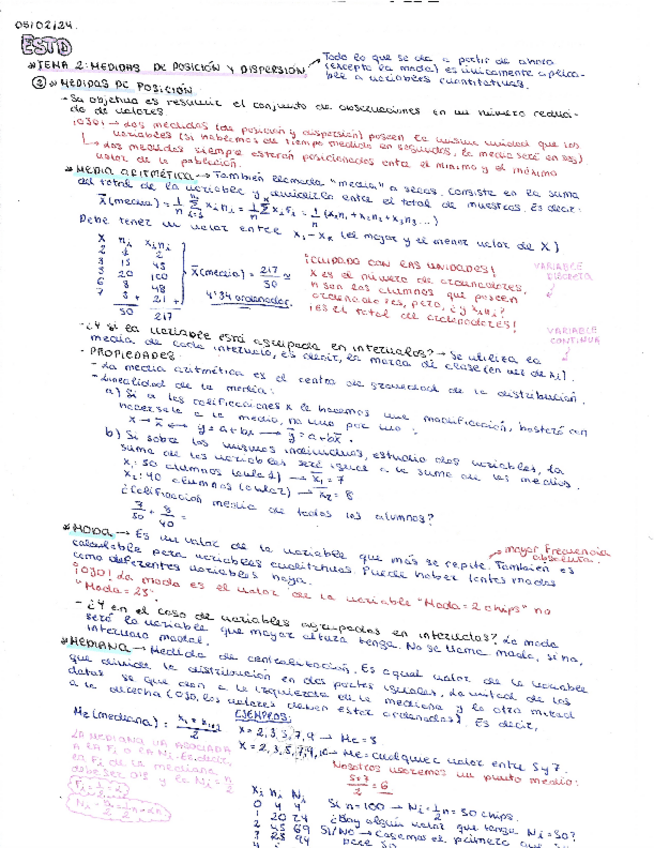 05/02/24.
ESTD
*TEMA 2: MEDIDAS DE POSICIÓN Y DISPERSIÓN
Todo lo que se da a partir de ahora
(excepto la moda) es únicamente aplica-
ble a variables cuantitativas.
② * MEDIDAS DE POSICIÓN
- Su objetivo es resumir el conjunto de observaciones en un número reduci-
do de valores.
¡OJO! → Las medidas (de posición y dispersión) poseen la misma unidad que las
variables (si hablamos de tiempo medido en segundos, la media será en seg)
↳ Las medidas siempre estarán posicionadas entre el mínimo y el máximo
valor de la población.
*MEDIA ARITMÉTICA → También llamada "media" a secas. Consiste en la suma
del total de la variable y dividirlo entre el total de muestras. Es decir:
x̄ (media) = 1/n Σ xi ni = 1/n Σ xi fi = 1/n (x1n1 + x2n2 + x3n3 ...)
Debe tener un valor entre x1 - xk (el mayor y el menor valor de X)
X ni xini
2 1 2
3 15 45
5 20 100
6 8 48
7 3 + 21 +
50 217
x̄ (media) = 217/50 ≈
4'34 ordenadores.
¡CUIDADO CON LAS UNIDADES!
X es el número de ordenadores,
n son los alumnos que poseen
ordenadores, pero, ¿y xini?
¡ES EL total de ordenadores!
VARIABLE
DISCRETA
VARIABLE
CONTINUA
- ¿Y si la variable está agrupada en intervalos? → Se utiliza la
media de cada intervalo, es decir, la marca de clase (en vez de xi).
- PROPIEDADES:
- La media aritmética es el centro de gravedad de la distribución.
- Linealidad de la media:
a) Si a las calificaciones x le hacemos una modificación, bastará con
hacérsela a la media, no uno por uno:
x → x̄ ⟷ y = a + bx → ȳ = a + bx̄.
b) Si sobre los mismos individuos, estudio dos variables, la
suma de las variables será igual a la suma de las medias.
x1: 50 alumnos (aula 1) → x̄1 = 7
x2: 40 alumnos (aula 2) → x̄2 = 8
¿Calificación media de todos los alumnos?
7/50 + 8/40 =
*MODA → Es un valor de la variable que más se repite. También es
mayor frecuencia
absoluta.
calculable para variables cualitativas. Puede haber tantas modas
como diferentes variables haya.
¡OJO! La moda es el valor de la variable "Moda = 2 chips" no
"Moda = 25"
- ¿Y en el caso de variables agrupadas en intervalos? La moda
será la variable que mayor altura tenga. No se llama moda, si no,
intervalo modal.
*MEDIANA → Medida de centralización. Es aquel valor de la variable
que divide la distribución en dos partes iguales, la mitad de los
datos se quedan a la izquierda de la mediana y la otra mitad
a la derecha (OJO, los valores deben estar ordenados). Es decir,
EJEMPLOS:
Me (mediana):
X = 2, 3, 5, 7, 9 → Me = 5
X = 2, 3, 5, 7, 9, → Me = cualquier valor entre 5 y 7.
Nosotros usaremos un punto medio:
5+7/2 = 6
LA MEDIANA VA ASOCIADA
A LA Fi o LA Ni. Es decir,
la Fi de la mediana
debe ser 0'5 y la Ni = n/2
xi ni Ni
0 4 4
1 20 24
2 45 69
3 25 94
Si n = 100 → Ni = 1/2 n = 50 chips.
¿Hay algún valor que tenga Ni = 50?
SI/NO → Cogemos el primero que